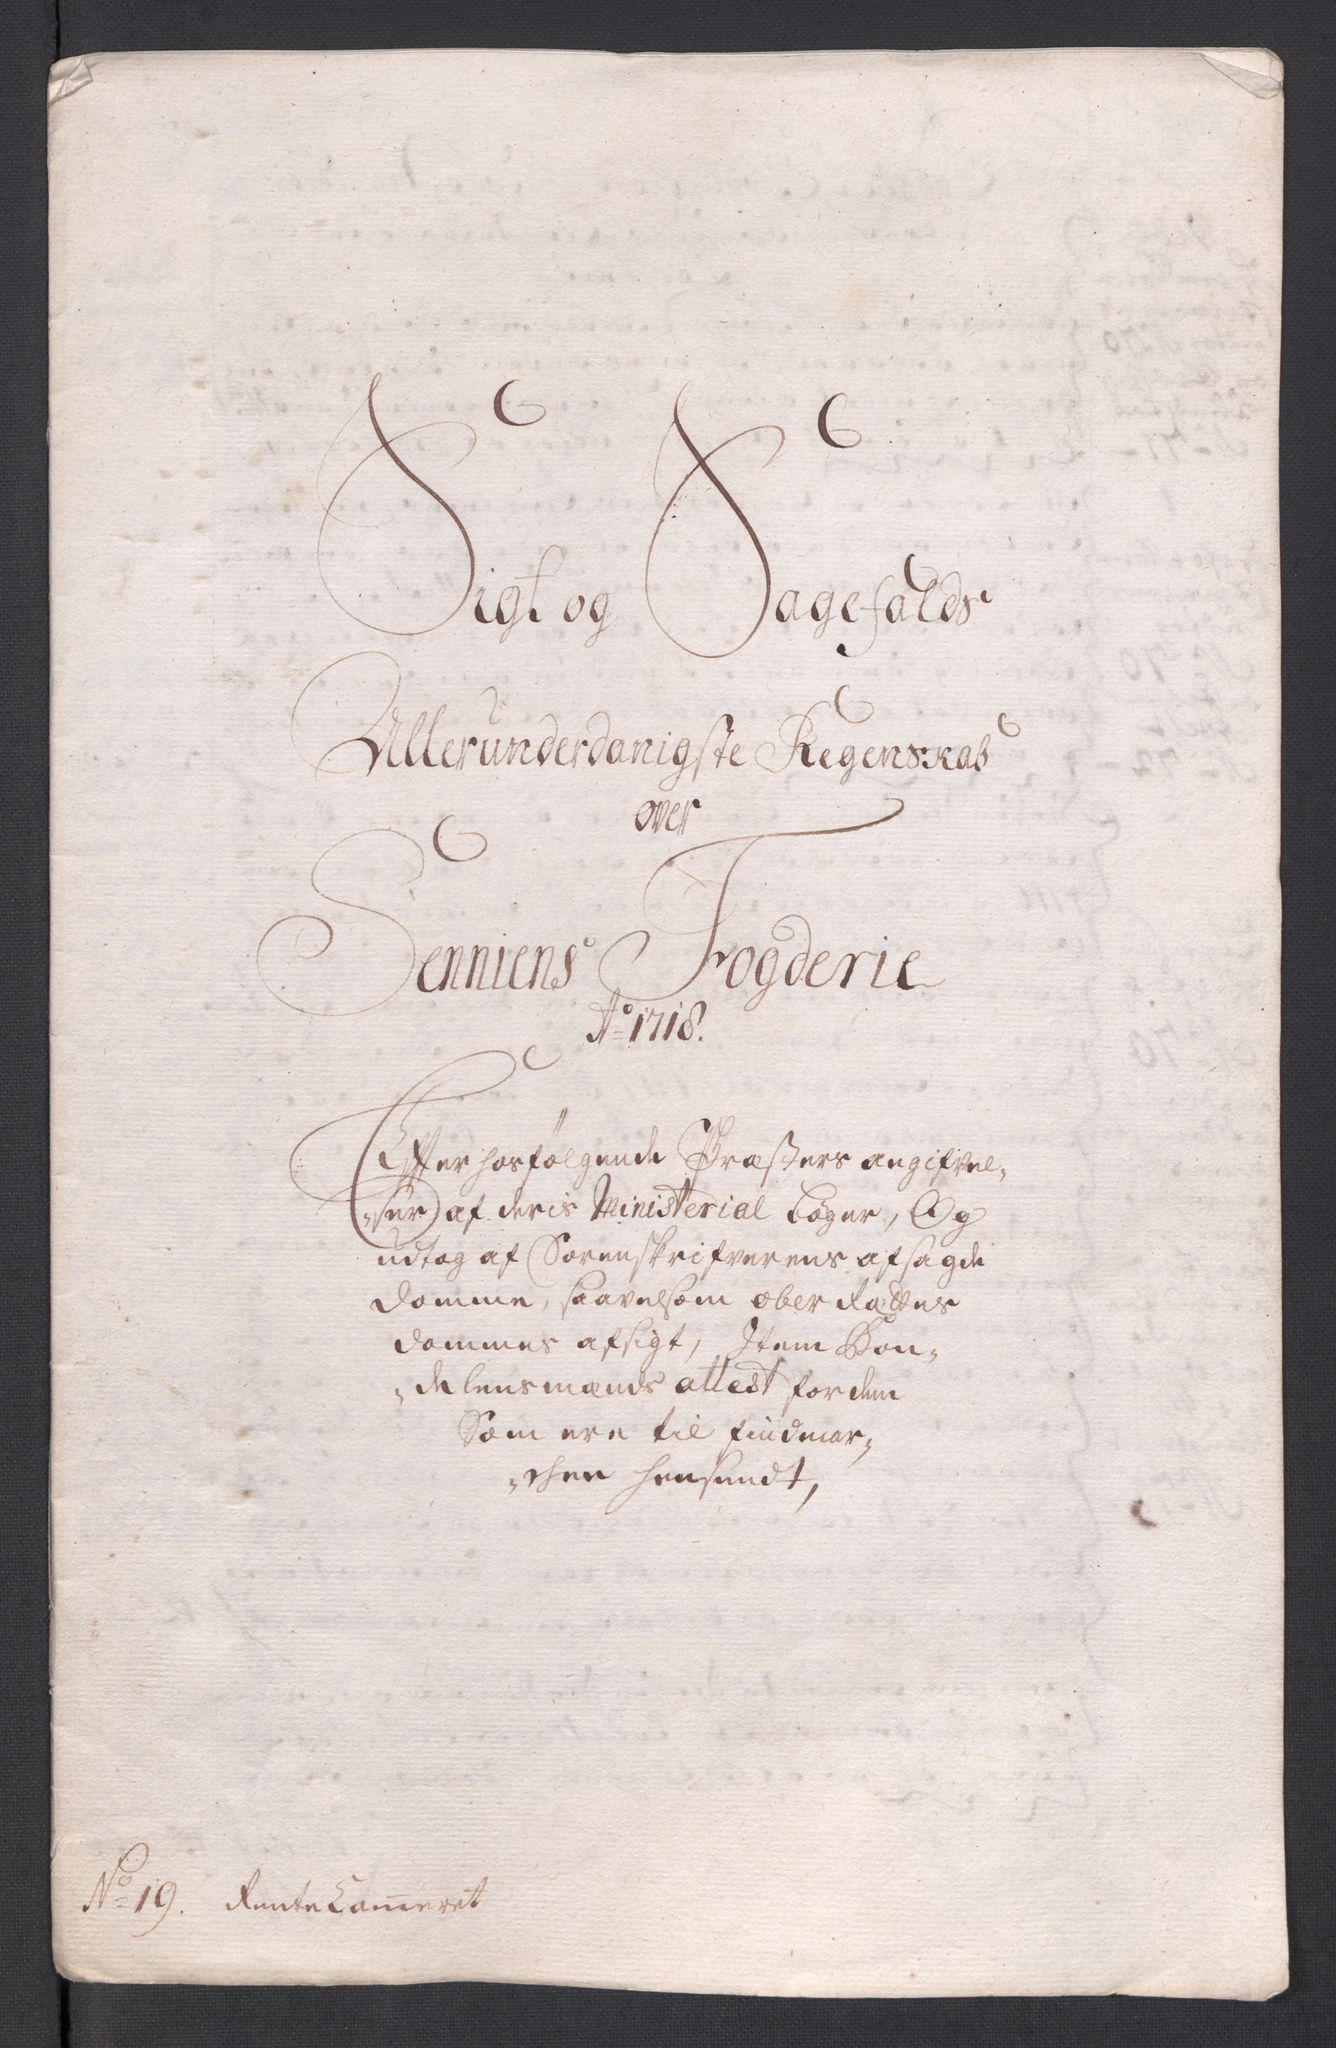 Sigt og Sagefalds
Allerunderdanigste Regenskab
over
Senniens Fogderie
Ao 1718.
Effter hosfölgende Præsters angifvel-
-ser af deris Ministerial böger, Og
udtog af Sorenskrifverens afsagde
domme, saavelsom ober Rættes
dommes afsigt, Item Bon-
-delensmænds attest for dem
Som ere til findmar-
-chen hensendt,
No 19. Rente Cam̄eret